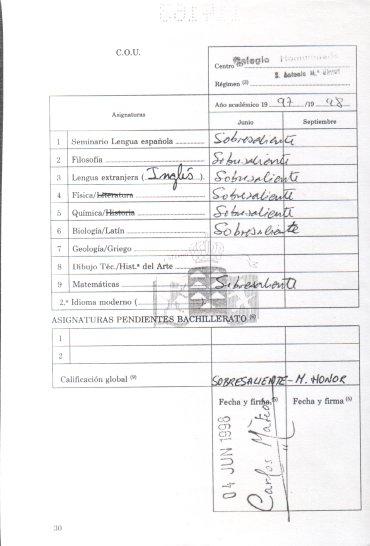 C.O.U.
Centro Colegio
S. Antonio M.ª Claret
Régimen (2)
Asignaturas
Año académico 19 97 /19 98
Junio Septiembre
1 Seminario Lengua española Sobresaliente
2 Filosofía Sobresaliente
3 Lengua extranjera (Inglés). Sobresaliente
4 Física/Literatura Sobresaliente
5 Química/Historia Sobresaliente
6 Biología/Latín Sobresaliente
7 Geología/Griego
8 Dibujo Téc./Hist.ª del Arte
9 Matemáticas Sobresaliente
2.º Idioma moderno ( )
ASIGNATURAS PENDIENTES BACHILLERATO (8)
1
2
Calificación global (9) SOBRESALIENTE - M. HONOR
Fecha y firma (5) Fecha y firma (5)
04 JUN 1998
Carlos Mateo
30